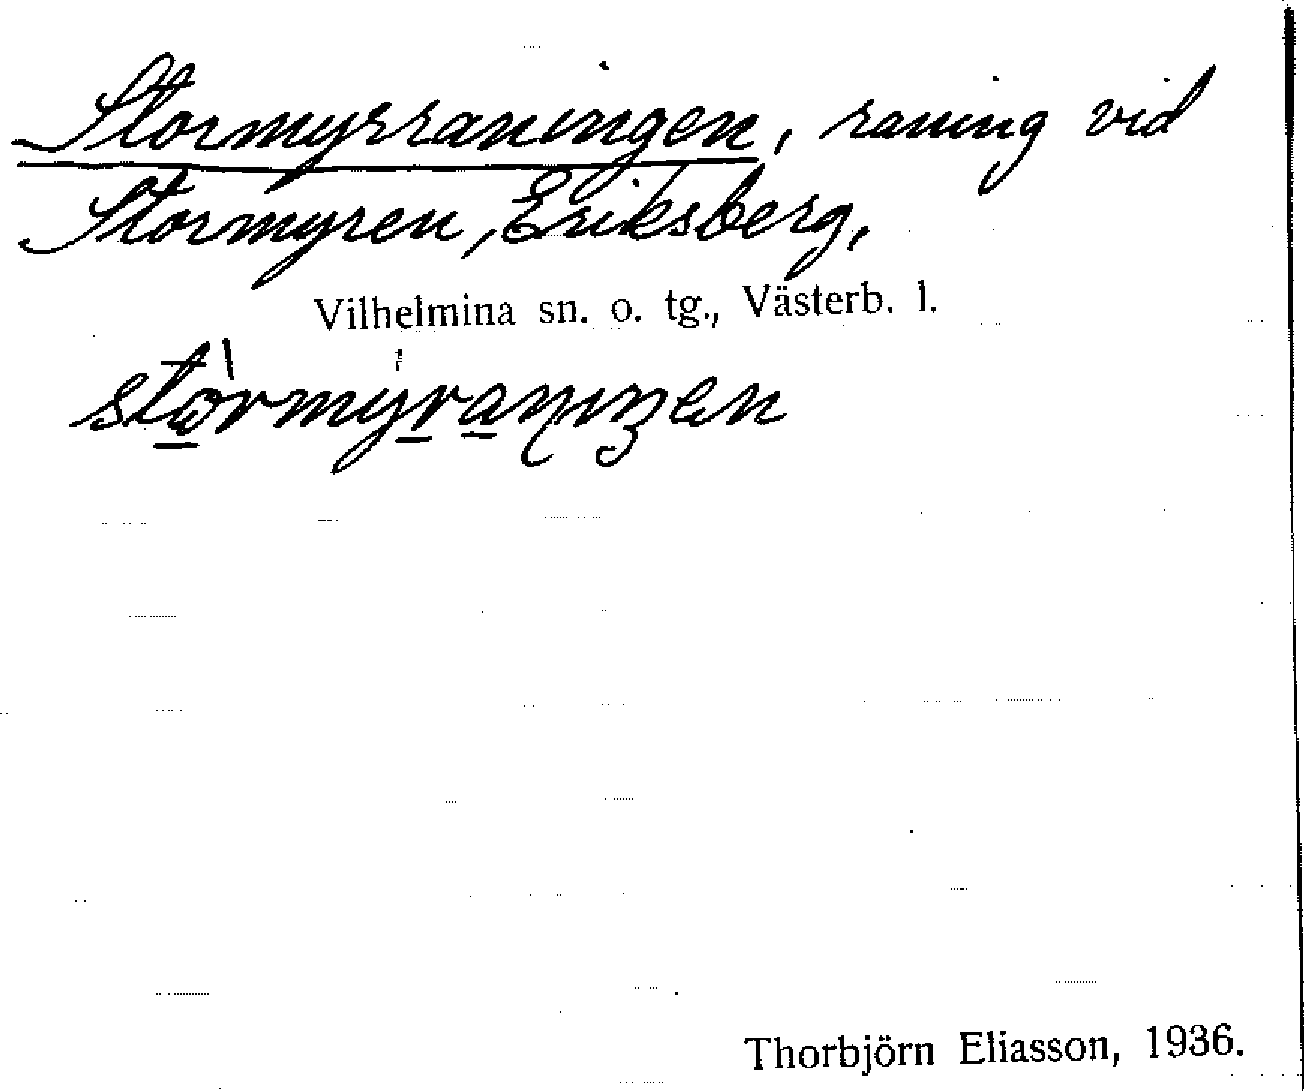 Stormyrraningen, raning vid
Stormyren, Eriksberg,
Vilhelmina sn. o. tg., Västerb. l.
Thorbjörn Eliasson, 1936.